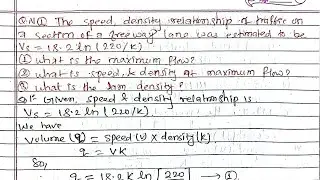 Q.N① The speed, density relationship of traffic on
a section of a freeway lane was estimated to be
Vs = 18.2 ln (220/k)
① What is the maximum flow?
② What is speed & density at maximum flow?
③ What is the Jam density?
Given, speed & density relationship is
Vs = 18.2 ln (220/k)
We have
Volume (q) = speed (v) x density (k)
q = VK
So,
q = 18.2 k ln [220 → ①